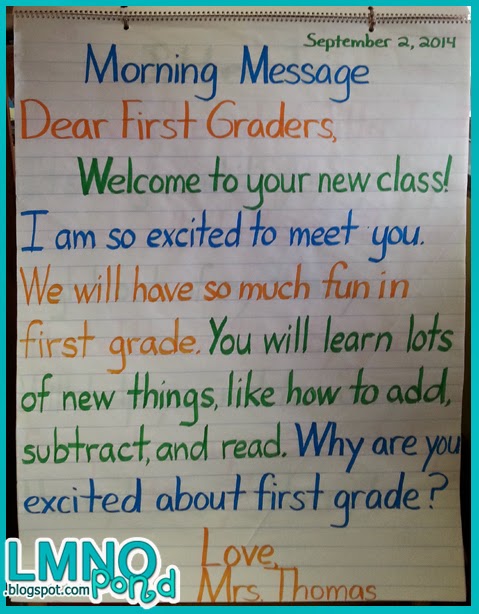 September 2, 2014
Morning Message
Dear First Graders,
Welcome to your new class!
I am so excited to meet you.
We will have so much fun in
first grade. You will learn lots
of new things, like how to add,
subtract, and read. Why are you
excited about first grade?
Love,
Mrs. Thomas
LMNO
pond
.blogspot.com